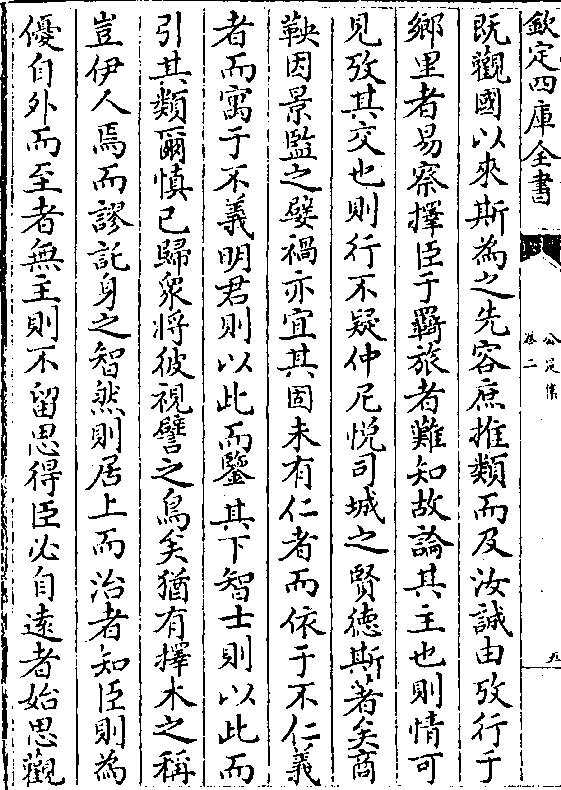 欽定四庫全書
公是集
卷二
五
既觀國以來斯為之先容庶推類而及汝誠由攷行于
鄉里者易察擇臣于羇旅者難知故論其主也則情可
見攷其交也則行不疑仲尼悅司城之賢德斯著矣商
鞅因景監之嬖禍亦宜其固未有仁者而依于不仁義
者而寓于不義明君則以此而鑒其下智士則以此而
引其類爾慎已歸衆將彼視譬之鳥矣猶有擇木之稱
豈伊人焉而謬託身之智然則居上而治者知臣則為
優自外而至者無主則不留思得臣必自遠者始思觀